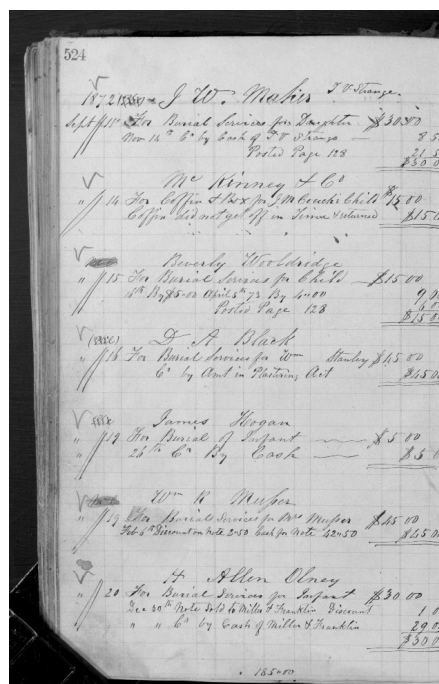 524
1872 J. W. Maher T V Strange.
Sept 11 For Burial Services for Daughter $30.00
Nov 14th Cr by Cash of T V Strange — 8 5
Posted Page 128 21 5
$30 0
Mc Kinney & Co
" 14 For Coffin & Box for J M Couchs Child $15 00
Coffin did not get off in Time & returned $15 0
Beverly Wooldredge
" 15 For Burial Services for Child — $15 00
By $5.00 April 5th 73 By 4.00 9 00
Posted Page 128
$15 00
D A Black
" 18 For Burial Services for Wm Stanley $45 00
Cr by Amt in Plastering Act $45 00
James Hogan
" 19 For Burial of Infant $5 00
26th Cr By Cash $5 0
Wm R Musser
" 19 For Burial Services for Mrs Musser $45 00
Feb 6th Discount on Note 2.50 Cash for Note 42.50 $45 00
H Allen Olney
" 20 For Burial Services for Infant $30 00
Dec 30th Note Sold to Miller & Franklin Discount 1 0
" " Cr by Cash of Miller & Franklin 29 0
$30 0
185.00